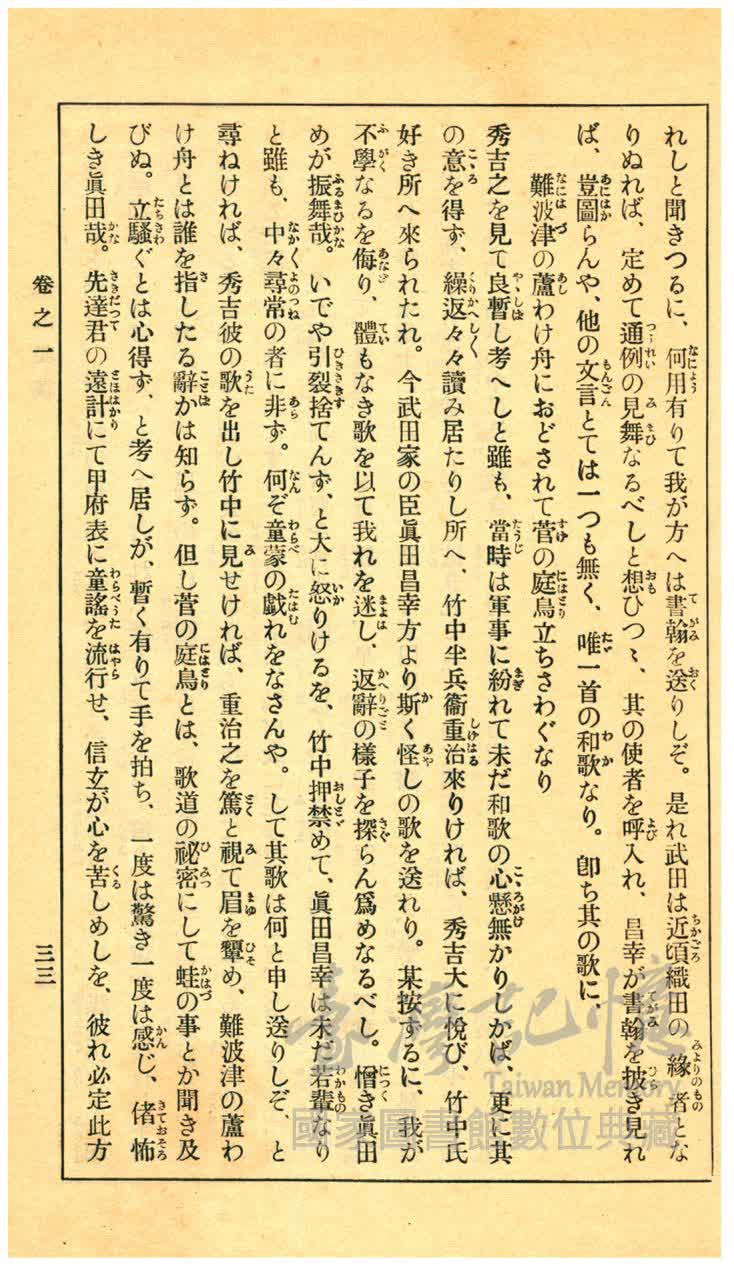 れしと聞きつるに、何用有りて我が方へは書翰を送りしぞ。是れ武田は近頃織田の緣者とな
りぬれば、定めて通例の見舞なるべしと想ひつヽ、其の使者を呼入れ、昌幸が書翰を披き見れ
ば、豈圖らんや、他の文言とては一つも無く、唯一首の和歌なり。卽ち其の歌に、
難波津の蘆わけ舟におどされて菅の庭鳥立ちさわぐなり
秀吉之を見て良暫し考へしと雖も、當時は軍事に紛れて未だ和歌の心懸無かりしかば、更に其
の意を得ず、繰返々々讀み居たりし所へ、竹中半兵衞重治來りければ、秀吉大に悅び、竹中氏
好き所へ來られたれ。今武田家の臣眞田昌幸方より斯く怪しの歌を送れり。某按ずるに、我が
不學なるを侮り、體もなき歌を以て我れを迷し、返辭の樣子を探らん爲めなるべし。憎き眞田
めが振舞哉。いでや引裂捨てんず、と大に怒りけるを、竹中押禁めて、眞田昌幸は未だ若輩なり
と雖も、中々尋常の者に非ず。何ぞ童蒙の戯れをなさんや。して其歌は何と申し送りしぞ、と
尋ねければ、秀吉彼の歌を出し竹中に見せければ、重治之を篤と視て眉を顰め、難波津の蘆わ
け舟とは誰を指したる辭かは知らず。但し菅の庭鳥とは、歌道の祕密にして蛙の事とか聞き及
びぬ。立騷ぐとは心得ず、と考へ居しが、暫く有りて手を拍ち、一度は驚き一度は感じ、偖怖
しき眞田哉。先達君の遠計にて甲府表に童謠を流行せ、信玄が心を苦しめしを、彼れ必定此方
卷之一
三三
臺灣記憶
Taiwan Memory
國家圖書館數位典藏